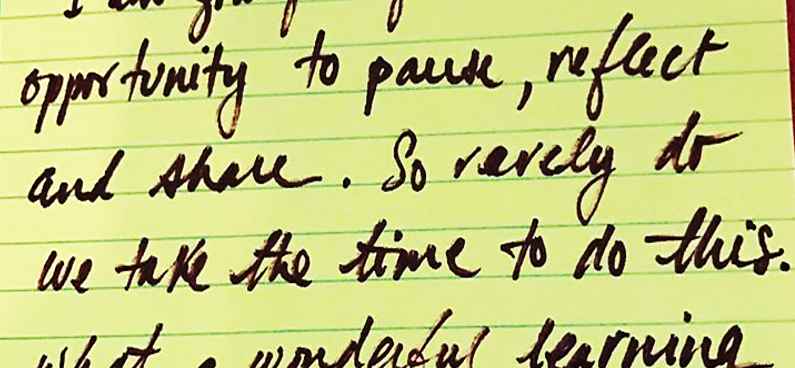 I am
opportunity to pause, reflect
and share. So rarely do
we take the time to do this.
What a wonderful learning